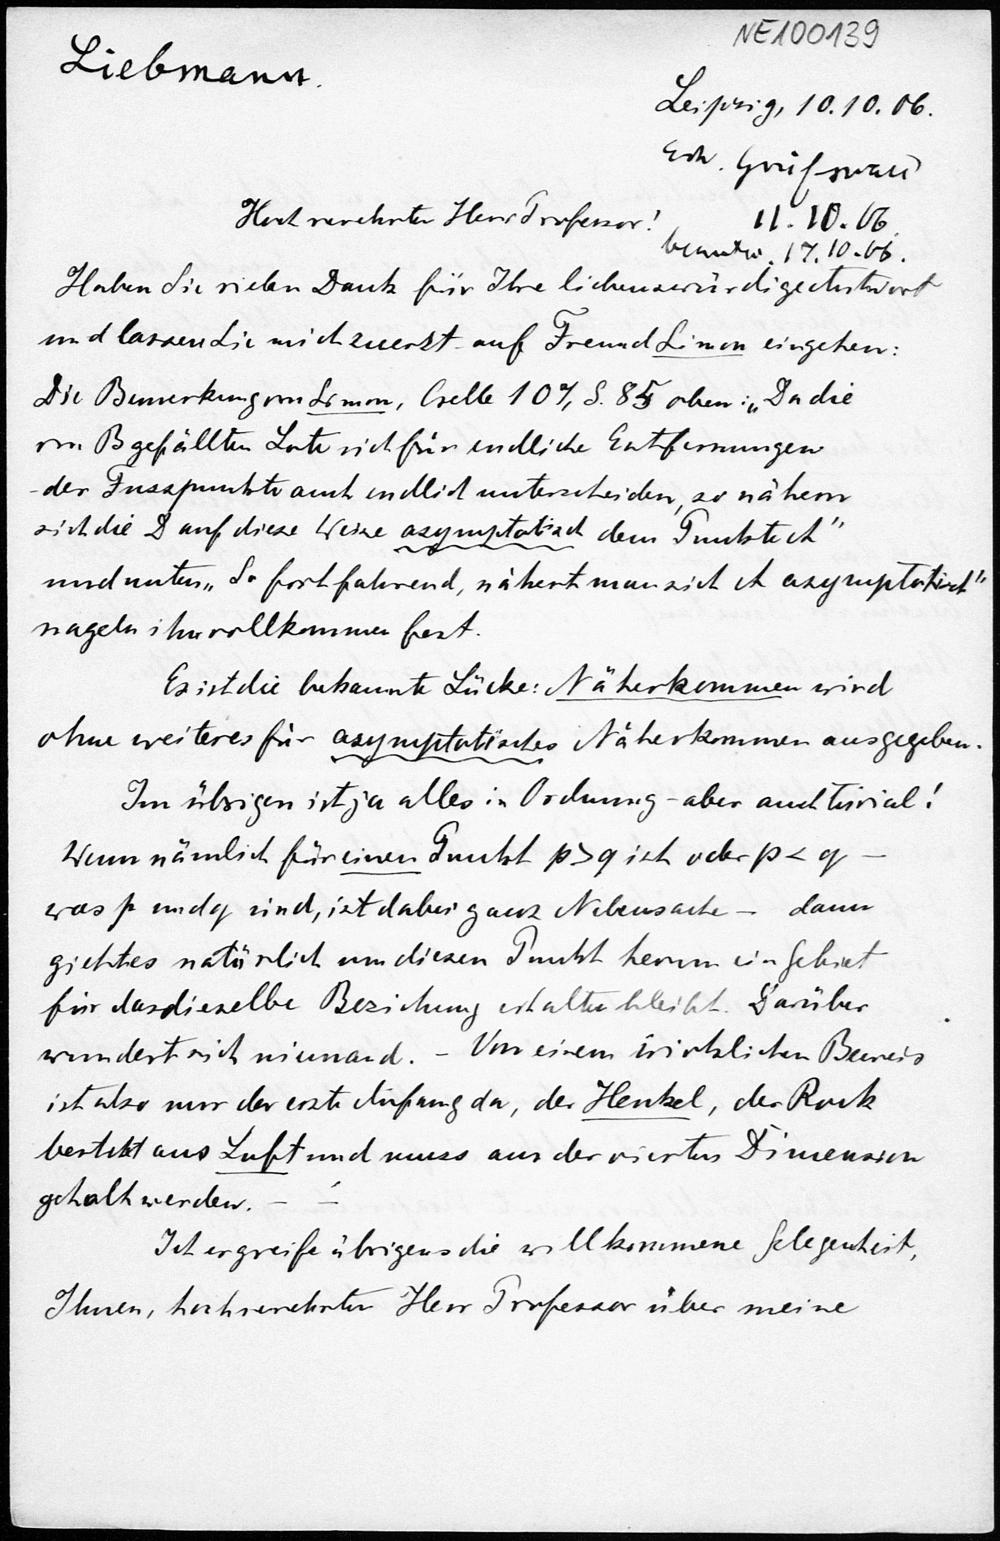 NE100139
Liebmann.
Leipzig, 10.10.06.
Erh. Greifswald
Hochverehrter Herr Professor!
11.10.06.
beantw. 17.10.06.
Haben Sie vielen Dank für Ihre liebenswürdige Antwort
und lassen Sie mich zuerst auf Freund Simon eingehen:
Die Bemerkung von Simon, Crelle 107, S. 85 oben: „Da die
von B gefällten Lote sich für endliche Entfernungen
der Fusspunkte auch endlich unterscheiden, so nähern
sich die D auf diese Weise asymptotisch dem Punkte A"
und unten „So fortfahrend, nähert man sich A asymptotisch"
nageln ihn vollkommen fest.
Es ist die bekannte Lücke: Näherkommen wird
ohne weiteres für asymptotisches Näherkommen ausgegeben.
Im übrigen ist ja alles in Ordnung - aber auch trivial!
Wenn nämlich für einen Punkt p > q ist oder p < q —
was p und q sind, ist dabei ganz Nebensache — dann
giebt es natürlich um diesen Punkt herum ein Gebiet
für das dieselbe Beziehung erhalten bleibt. Darüber
wundert sich niemand. - Von einem wirklichen Beweis
ist also nur der erste Anfang da, der Henkel, der Rock
besteht aus Luft und muss aus der vierten Dimension
geholt werden. — —
Ich ergreife übrigens die willkommene Gelegenheit,
Ihnen, hochverehrter Herr Professor über meine